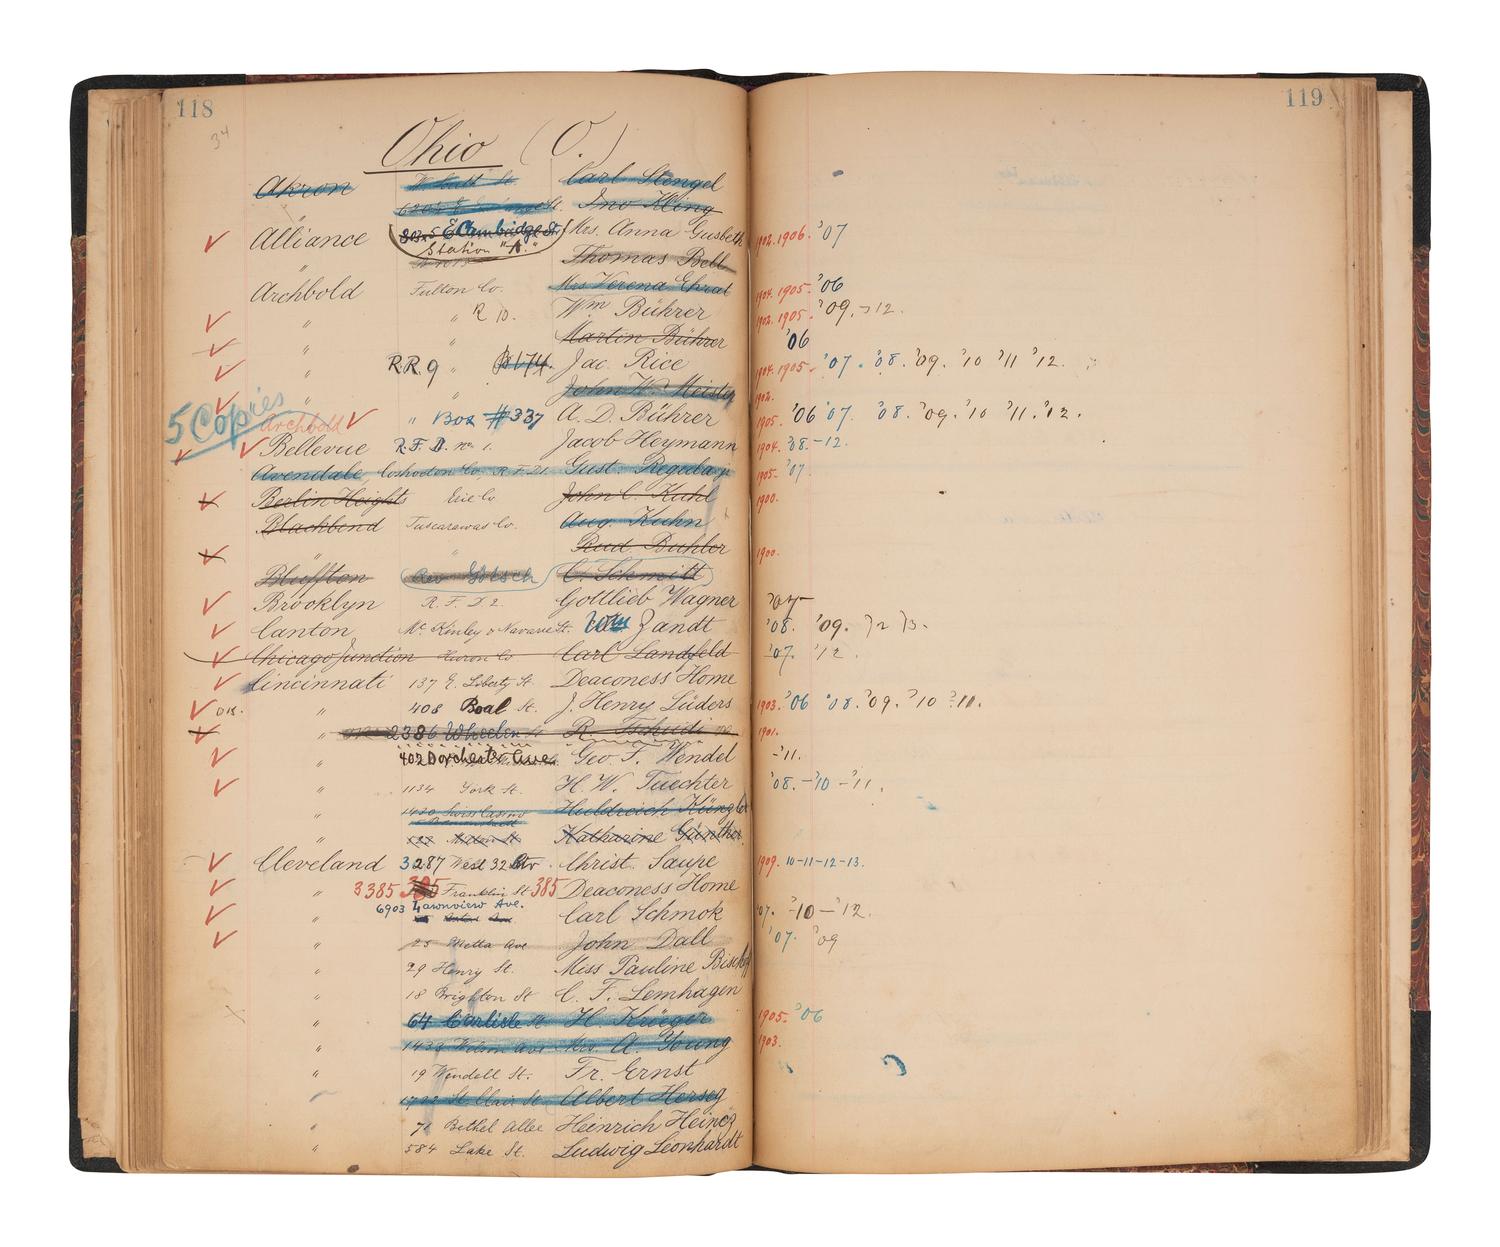 118
34
119
Ohio (O.)
Akron W. South St. Carl Stengel
Jno Kling
Alliance E Cambridge St. Mrs. Anna Gusbeth 1902. 1906. '07
Station "A."
" Thomas Bell
Archbold Fulton Co. Mrs Verena Ehrat 1904. 1905. '06
" " R 10. Wm Bührer 1902. 1905. '09, -12.
" Martin Bührer '06
" RR 9 " B 174. Jac. Rice 1904. 1905- '07. '08. '09. '10 '11 '12.
" John W. Meister 1902.
5 Copies Archbold " Box # 337 A. D. Bührer 1905. '06 '07. '08. '09. '10 '11. '12.
Bellevue R. F. D. No. 1. Jacob Heymann 1904. '08-12.
Avendale, Coshocton Co, R. F. D1. Gust. Regula jr 1905. '07.
Berlin Heights Erie Co John C. Kuhl 1900.
Blackbend Tuscarawas Co. Aug. Kuhn
" " Rud. Buhler 1900.
Bluffton Rev Götsch C. Schmitt
Brooklyn R. F. D 2. Gottlieb Wagner
Canton Mc Kinley & Navarre St. Wm Zandt '08. '09.
Chicago Junction Huron Co Carl Landfeld '07. '12.
Cincinnati 137 E. Liberty St. Deaconess Home
OK. " 408 Boal St. J. Henry Lüders 1903. '06 '08. '09. '10 '11.
" 2386 Wheeler St R. Tschudi 1901.
" 402 Dorchester Ave. Geo. F. Wendel -'11.
" 1134 York St. H. W. Tuechter '08. -'10 -'11.
1430 Huldreich Künzler
" St Katharine Günther
Cleveland 3287 West 32 Str Christ. Saupe 1909. 10-11-12-13.
" 3385 Franklin St 385 Deaconess Home
" 6903 Lawnview Ave. Carl Schmok '07. -'10-'12.
" 25 Metta Ave John Dall '07. '09
" 29 Henry St. Miss Pauline
" 18 Brighton St C. F. Lemhagen
" 64 Carlisle St H. Krüeger 1905. '06
" 1433 Ave Mrs. A. Young 1903.
" 19 Wendell St. Fr. Ernst
St. Clair St. Albert Herzog
" 71 Bethel Allee Heinrich Heinez
" 584 Lake St. Ludwig Leonhardt